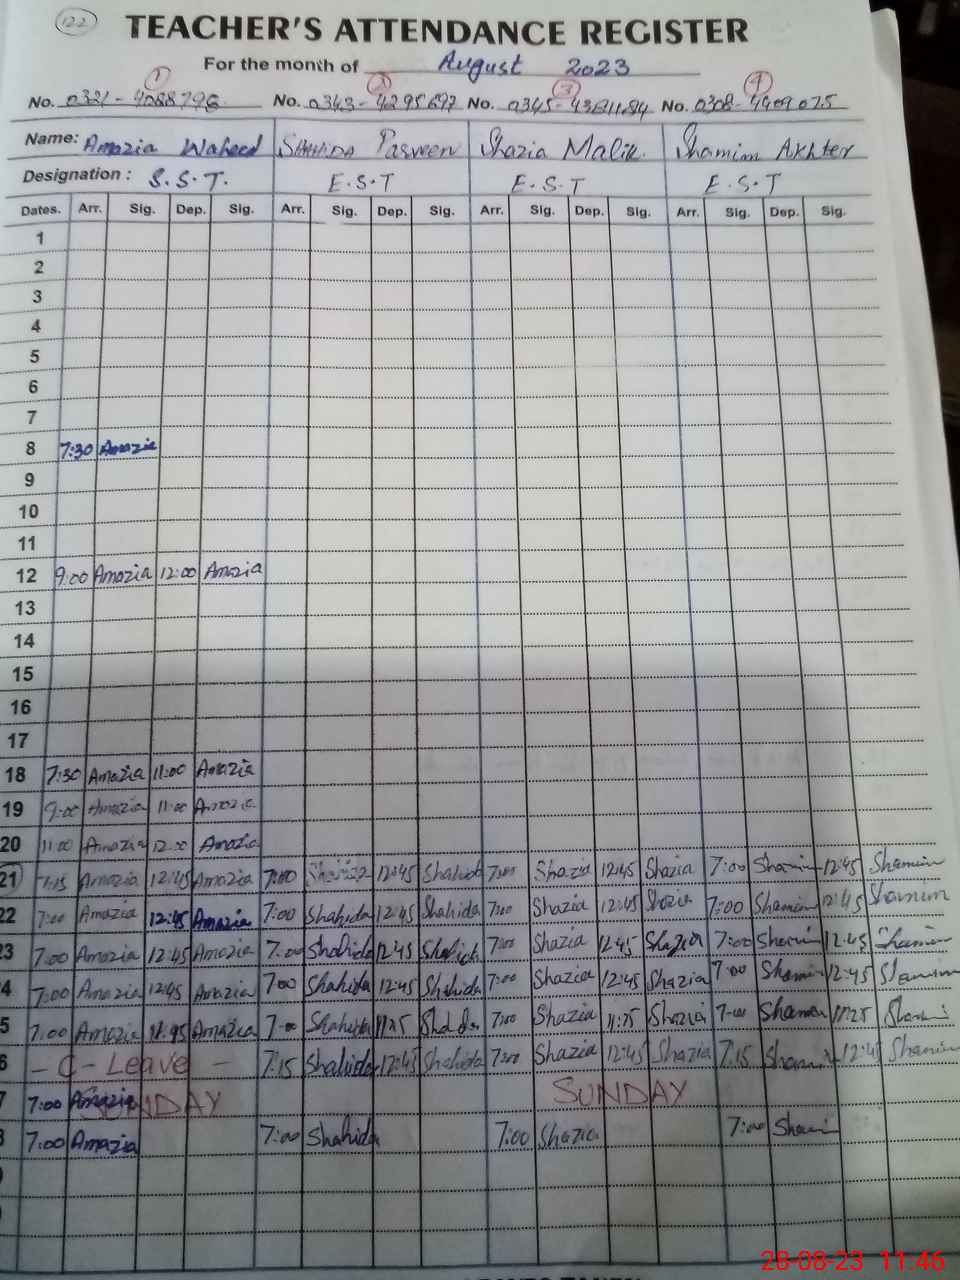 122
TEACHER'S ATTENDANCE REGISTER
For the month of August 2023
1 2 3 4
No. 0321-4088796 No. 0343-4295697 No. 0345-4381184 No. 0308-4409075
Name: Amazia Waheed SHAHIDA Parveen Shazia Malik. Shamim Akhter
Designation: S.S.T. E.S.T E.S.T E.S.T
Dates. Arr. Sig. Dep. Sig. Arr. Sig. Dep. Sig. Arr. Sig. Dep. Sig. Arr. Sig. Dep. Sig.
1
2
3
4
5
6
7
8 7:30 Amazia
9
10
11
12 9:00 Amazia 12:00 Amazia
13
14
15
16
17
18 7:30 Amazia 11:00 Amazia
19 9:00 Amazia 11:00 Amazia
20 11:00 Amazia 12:00 Amazia
21 7:15 Amazia 12:45 Amazia 7:00 12:45 Shahida 7:00 Shazia 12:45 Shazia 7:00 Shamim 12:45 Shamim
22 7:00 Amazia 12:45 Amazia 7:00 Shahida 12:45 Shahida 7:00 Shazia 12:45 Shazia 7:00 Shamim 12:45 Shamim
23 7:00 Amazia 12:45 Amazia 7:00 Shahida 12:45 Shahida 7:00 Shazia 12:45 Shazia 7:00 Shamim 12:45 Shamim
4 7:00 Amazia 12:45 Amazia 7:00 Shahida 12:45 Shahida 7:00 Shazia 12:45 Shazia 7:00 Shamim 12:45 Shamim
5 7:00 Amazia Amazia 7:00 Shahida Shahida 7:00 Shazia Shazia 7:00 Shamim Shamim
6 - C - Leave - 7:15 Shahida 12:45 Shahida 7:00 Shazia 12:45 Shazia 7:15 Shamim 12:45 Shamim
7 7:00 Amazia SUNDAY SUNDAY
8 7:00 Amazia 7:00 Shahida 7:00 Shazia 7:00 Shamim
28-08-23 11:46